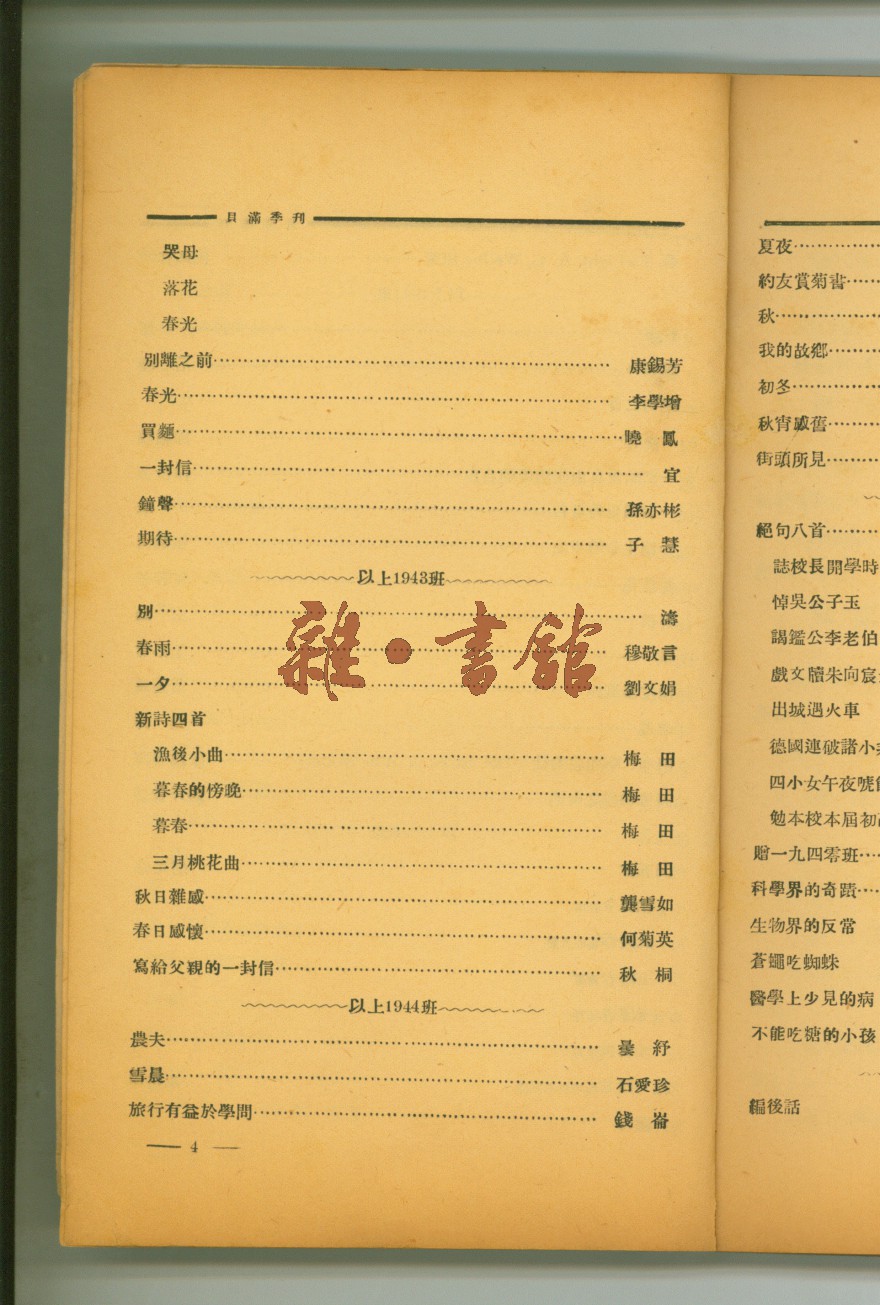 貝滿季刊
哭母
落花
春光
別離之前 康錫芳
春光 李學增
買麵 曉鳳
一封信 宜
鐘聲 孫亦彬
期待 子慧
以上1943班
別 濤
春雨 穆敬言
一夕 劉文娟
新詩四首
漁後小曲 梅田
暮春的傍晚 梅田
暮春 梅田
三月桃花曲 梅田
秋日雜感 龔雪如
春日感懷 何菊英
寫給父親的一封信 秋桐
以上1944班
農夫 紓
雪晨 石愛珍
旅行有益於學問 錢崙
— 4 —
雜·書館
夏夜
約友賞菊書
秋
我的故鄉
初冬
秋宵感舊
街頭所見
絕句八首
誌校長開學時
悼吳公子玉
謁鑑公李老伯
戲文牘朱向宸
出城遇火車
德國連破諸小
四小女午夜號
勉本校本屆初
贈一九四零班
科學界的奇蹟
生物界的反常
蒼蠅吃蜘蛛
醫學上少見的病
不能吃糖的小孩
編後話